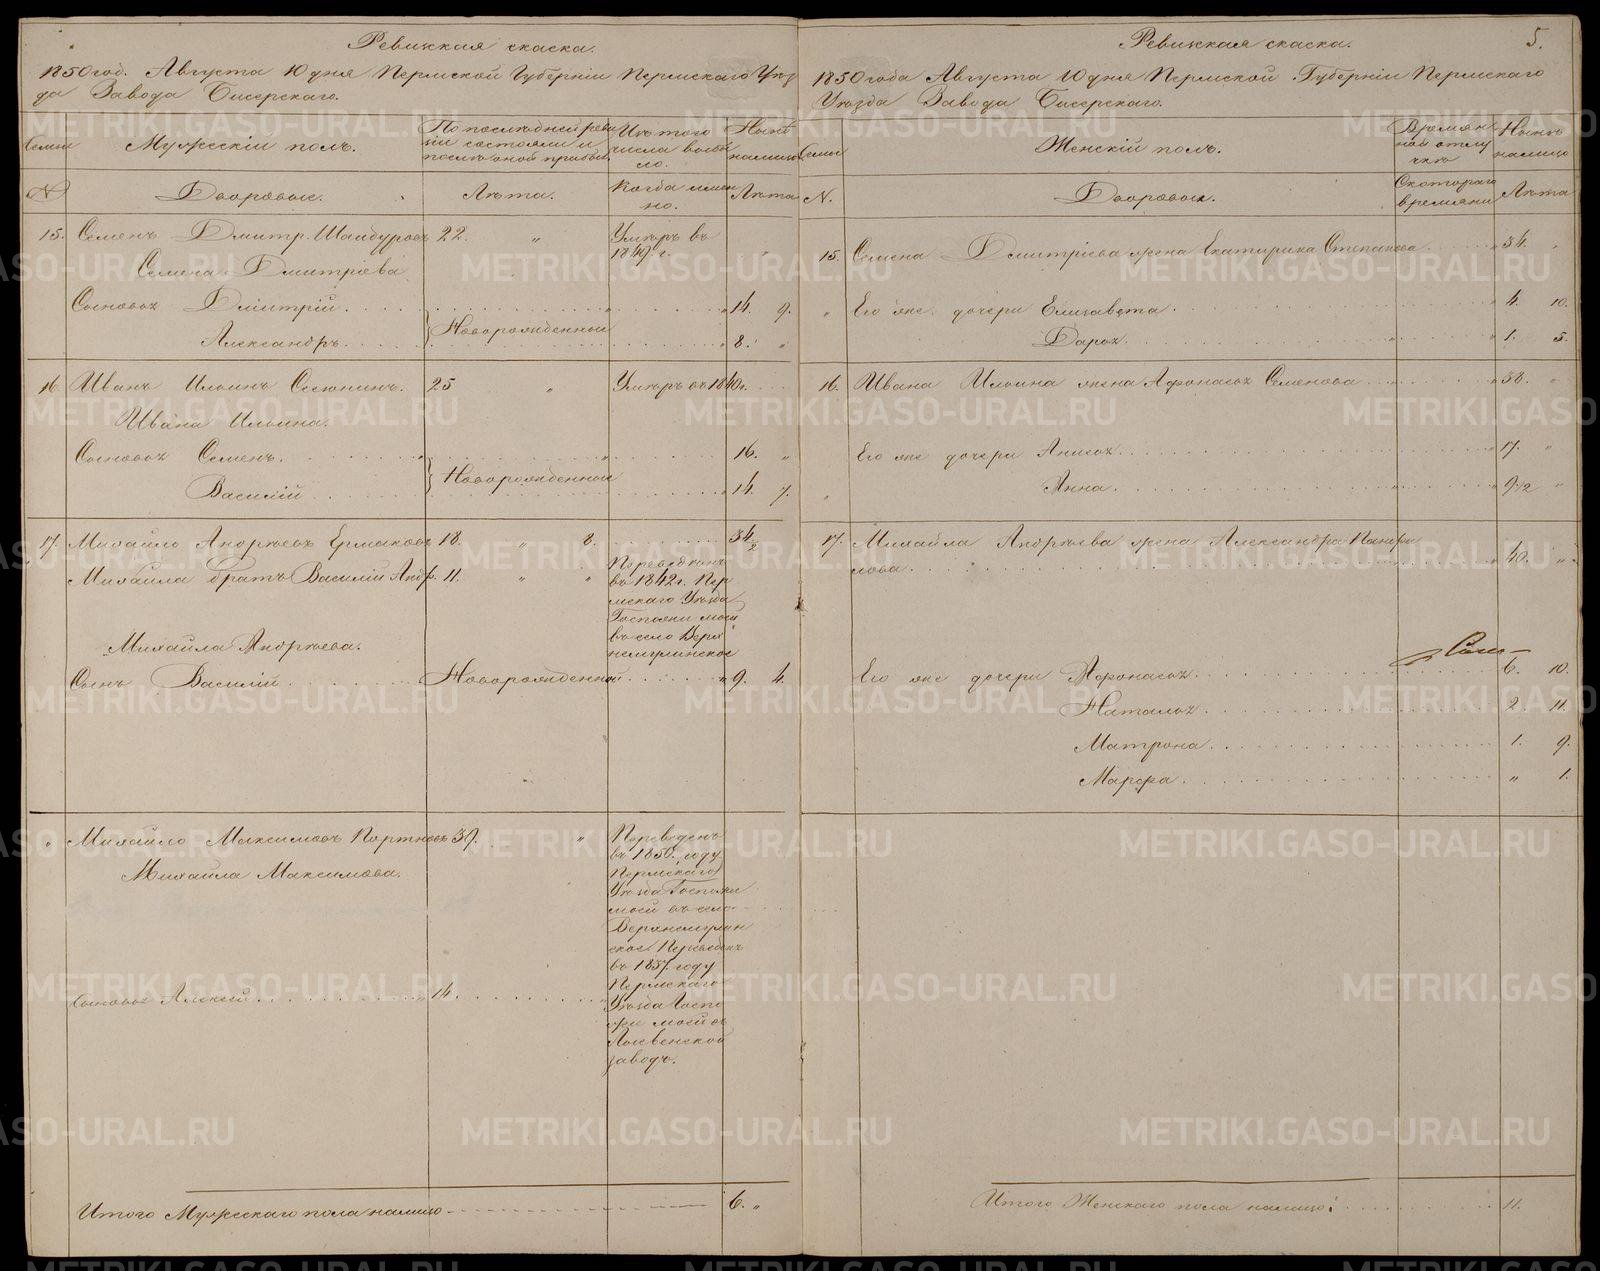 Ревижская скаска.
1850 год. Августа 10 дня Пермской Губернiи Пермскаго Уѣз
да Завода Бисерскаго.
Семьи
Мужескiй полъ.
По послѣдней реви
зiи состояли и
послѣ оной прибы
Изъ того
числа выбы
ло.
Нынѣ
налицо
N
Дворовые.
Лѣта.
Когда имен
но.
Лѣта
15. Семенъ Дмитр. Шайдуровъ 22. " Умеръ въ
1849 г. "
Семена Дмитрiева
Сыновья Дмитрiй. 14. 9.
Александръ. Новорожденные 8. "
16. Иванъ Ильинъ Сесюнинъ. 25 " Умеръ въ 1840 г.
Ивана Ильина.
Сыновья Семенъ. 16. "
Василiй Новорожденные 14. 7.
17. Михайло Андреевъ Ермаковъ 18. " 8. 34 1/2
Михайла братъ Василiй Андр. 11. " " Переведенъ
въ 1842 г. Пер
мскаго Уѣзда
Госпожи моей
въ село Верх
немулинское
Михайла Андреева.
Сынъ Василiй Новорожденной 9. 4.
" Михайло Максимовъ Портновъ 39. " Переведенъ
въ 1850. году
Пермскаго
Уѣзда Госпожи
моей въ село
Верхнемулин
ское
Михайла Максимова.
Переведенъ
въ 1837. году
Пермскаго
Уѣзда Госпо
жи моей въ
заводъ.
Сыновья Алексей " 14.
Итого Мужескаго пола налицо 6. "
Ревижская скаска. 5.
1850 года Августа 10 дня Пермской Губернiи Пермскаго
Уѣзда Завода Бисерскаго.
Семьи
Женскiй полъ.
Времян
ной отлу
чкѣ
Нынѣ
налицо
N.
Дворовыя.
Скотораго
времяни
Лѣта
15. Семена Дмитрiева жена Екатирина Степанова 34. "
" Его же дочери Елизавета. 4. 10.
Дарья. 1. 5.
16. Ивана Ильина жена Афонасья Семенова 38. "
Его же дочери Анисья. 17. "
" Анна. 9 1/2 "
17. Михайла Андреева жена Александра Панфи
лова. 40. "
Его же дочери Афонасья. 6. 10.
Наталья. 2. 11.
Матрона. 1. 9.
Марфа. " 1.
Итого Женскаго пола налицо: 11.
METRIKI.GASO-URAL.RU